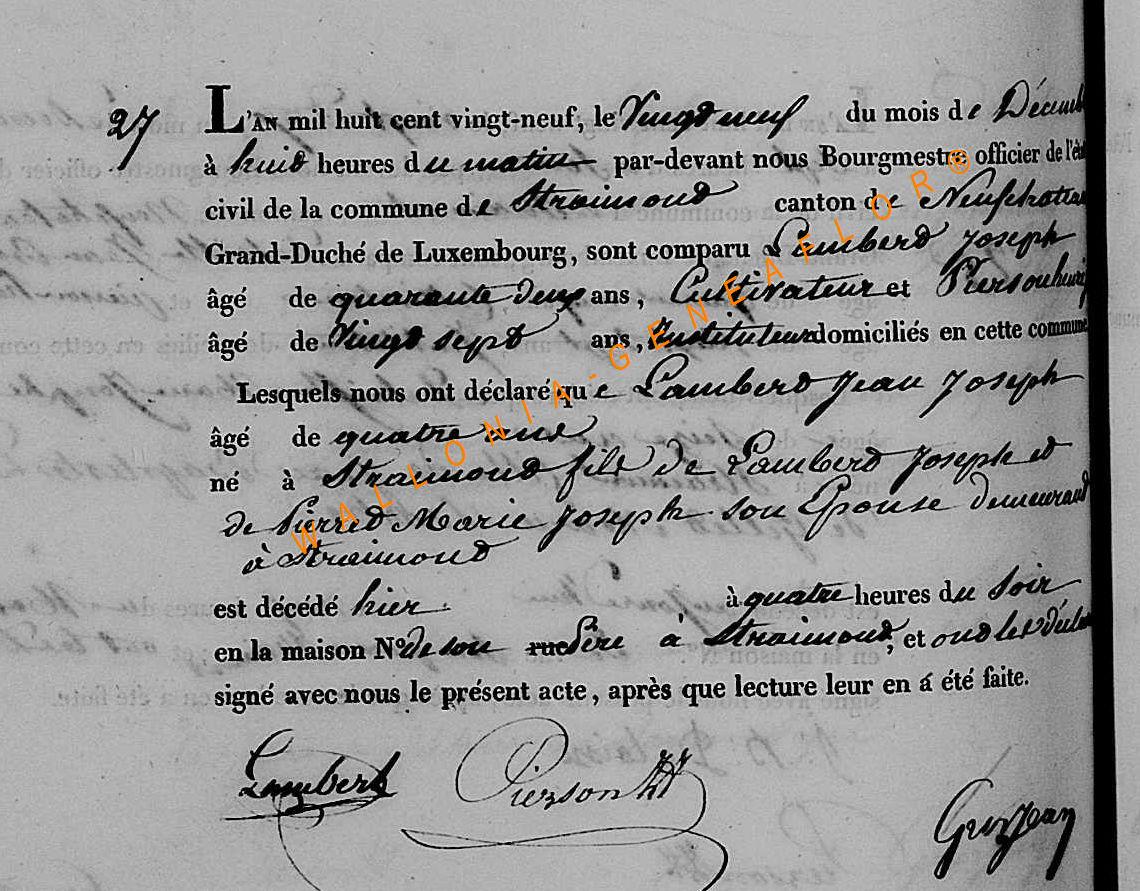 27
L'AN mil huit cent vingt-neuf, le Vingt neuf du mois de Décemb
à huit heures du matin par-devant nous Bourgmestre officier de l'éta
civil de la commune de Straimond canton de Neufchateau
Grand-Duché de Luxembourg, sont comparu Lambert Joseph
âgé de quarante deux ans, Cultivateur et Pierson henri
âgé de Vingt sept ans, Instituteur domiciliés en cette commune
Lesquels nous ont déclaré que Lambert Jean Joseph
âgé de quatre ans
né à Straimond fils de Lambert Joseph et
de Pierret Marie Joseph son Epouse demeurant
à Straimond
est décédé hier à quatre heures du soir
en la maison N° de son rue Père à Straimond, et ont les
signé avec nous le présent acte, après que lecture leur en á été faite.
Lambert Pierson
WALLONIA-GENEAFLOR®